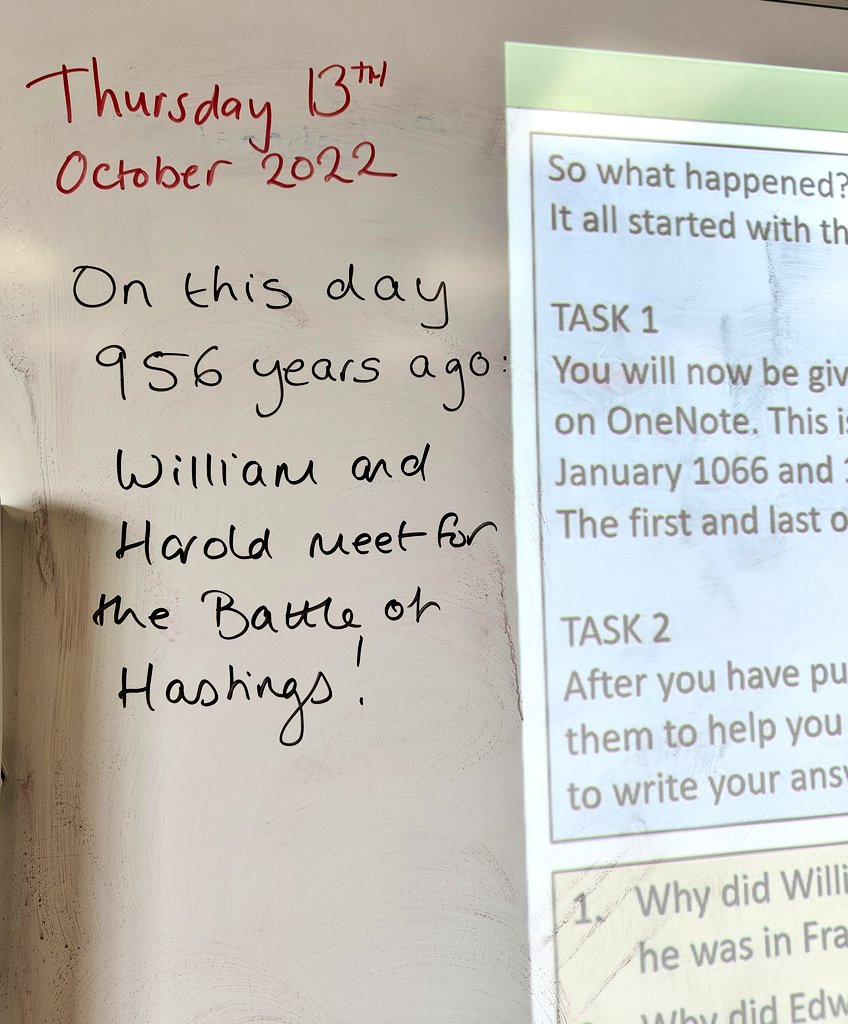 Thursday 13TH
October 2022
On this day
956 years ago:
William and
Harold meet for
the Battle of
Hastings!
So what happened?
It all started with th
TASK 1
You will now be giv
on OneNote. This is
January 1066 and 1
The first and last o
TASK 2
After you have pu
them to help you
to write your answ
1. Why did Willi
he was in Fra
Why did Edw